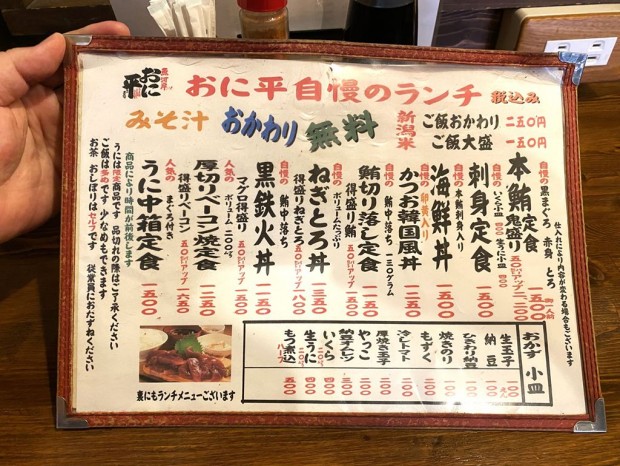 魚河岸
おに平
おに平自慢のランチ 税込み
みそ汁 おかわり 無料
新潟米
ご飯おかわり 二五〇円
ご飯大盛 一五〇円
仕入れにより内容が変わる場合もございます
自慢の黒まぐろ 赤身 とろ
本鮪定食 一五〇〇
鬼盛り
刺身定食 一五〇〇
いくら小皿
生うに小皿
自慢の本鮪刺身入り
海鮮丼 一一五〇
自慢の卵黄入り
かつお韓国風丼
自慢の鮪中落ち 一五〇グラム
鮪切り落し定食
得盛り鮪 五〇グラムアップ
自慢のボリュームたっぷり
ねぎとろ丼 一三五〇
得盛りねぎとろ
自慢の鮪中落ち
黒鉄火丼 一一五〇
マグロ得盛り
人気のボリューム 二〇〇g
厚切りベーコン焼定食 一二五〇
得盛りベーコン 一六五〇
人気のまぐろ付き
うに中箱定食 一五〇〇
商品により時間が前後します
うには限定商品です 品切れの際はご了承ください
ご飯は多めです 少なめもできます
お茶 おしぼりはセルフです 従業員におたずねください
おかず 小皿
生玉子 一〇〇
納豆 一〇〇
ひきわり納豆
焼きのり
もずく
冷しトマト
厚焼き玉子
やっこ
納豆オムレツ
いくら 四〇〇
生うに 四〇〇
もつ煮込 ハーフ 五〇〇
裏にもランチメニューございます